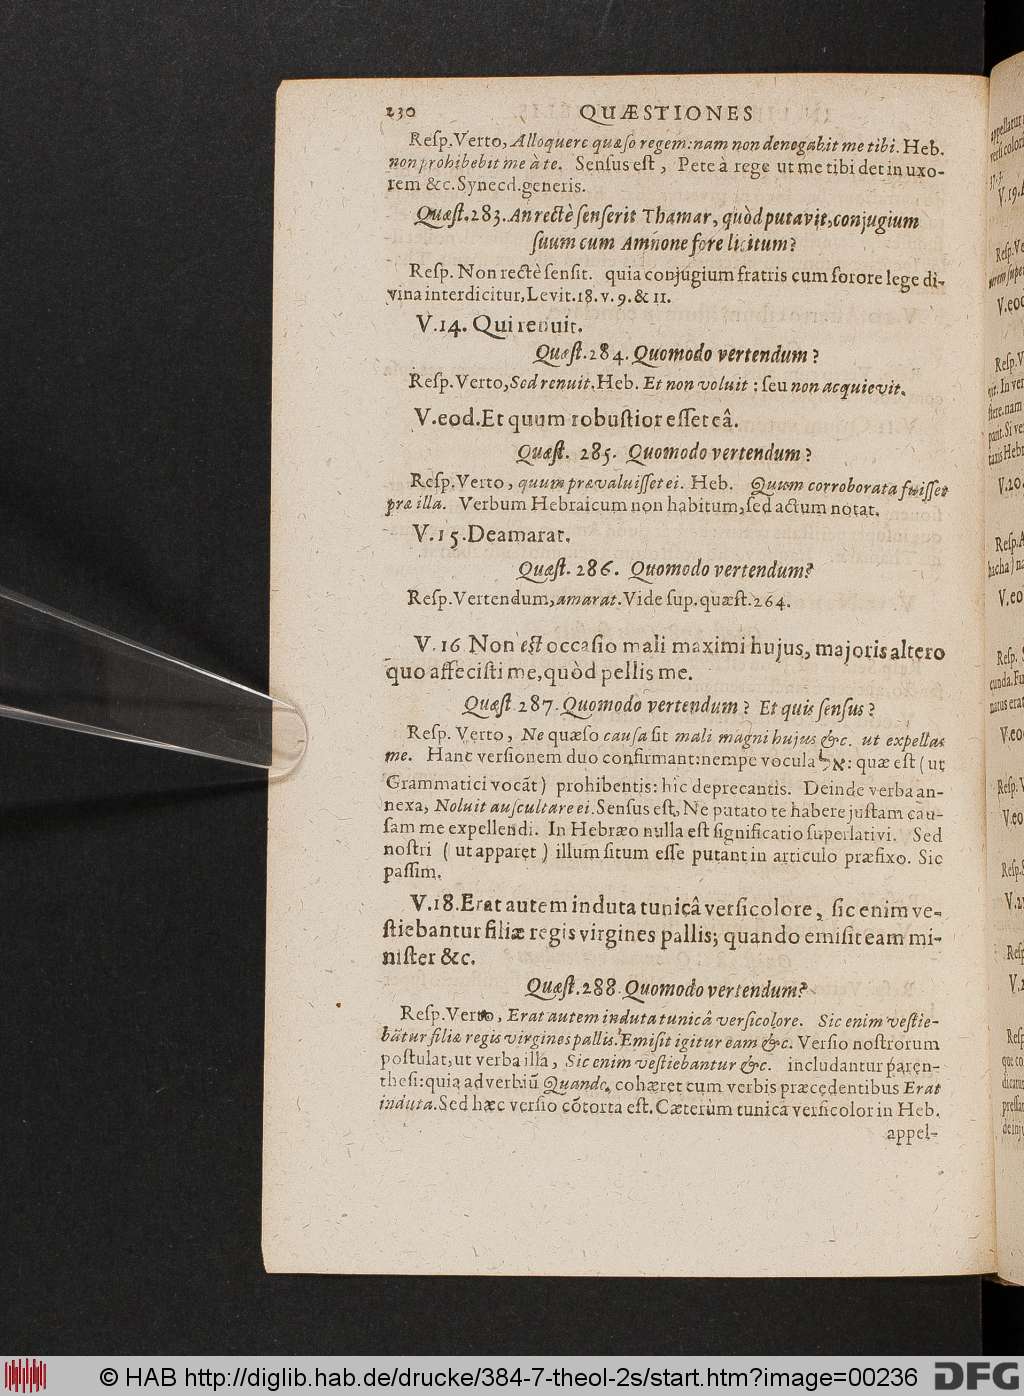 230 QUÆSTIONES
Reſp. Verto, Alloquere quæſo regem: nam non denegabit me tibi. Heb.
non prohibebit me à te. Senſus eſt, Pete à rege ut me tibi det in uxo-
rem &c. Synecd. generis.
Quæſt. 283. An rectè ſenſerit Thamar, quòd putavit, conjugium
ſuum cum Amnone fore licitum?
Reſp. Non rectè ſenſit. quia conjugium fratris cum ſorore lege di-
vina interdicitur, Levit. 18. v. 9. & 11.
V. 14. Qui renuit.
Quæſt. 284. Quomodo vertendum?
Reſp. Verto, Sed renuit. Heb. Et non voluit: ſeu non acquievit.
V. eod. Et quum robuſtior eſſet eâ.
Quæſt. 285. Quomodo vertendum?
Reſp. Verto, quum prævaluiſſet ei. Heb. Quum corroborata fuiſſet
præ illa. Verbum Hebraicum non habitum, ſed actum notat.
V. 15. Deamarat.
Quæſt. 286. Quomodo vertendum?
Reſp. Vertendum, amarat. Vide ſup. quæſt. 264.
V. 16 Non eſt occaſio mali maximi hujus, majoris altero
quo affeciſti me, quòd pellis me.
Quæſt. 287. Quomodo vertendum? Et quis ſenſus?
Reſp. Verto, Ne quæſo cauſa ſit mali magni hujus &c. ut expellas
me. Hanc verſionem duo confirmant: nempe vocula אל: quæ eſt (ut
Grammatici vocāt) prohibentis: hîc deprecantis. Deinde verba an-
nexa, Noluit auſcultare ei. Senſus eſt, Ne putato te habere juſtam cau-
ſam me expellendi. In Hebræo nulla eſt ſignificatio ſuperlativi. Sed
noſtri (ut apparet) illum ſitum eſſe putant in articulo præfixo. Sic
paſſim.
V. 18. Erat autem induta tunicâ verſicolore, ſic enim ve-
ſtiebantur filiæ regis virgines pallis; quando emiſit eam mi-
niſter &c.
Quæſt. 288. Quomodo vertendum?
Reſp. Verto, Erat autem induta tunicâ verſicolore. Sic enim veſtie-
bātur filiæ regis virgines pallis. Emiſit igitur eam &c. Verſio noſtrorum
poſtulat, ut verba illa, Sic enim veſtiebantur &c. includantur paren-
theſi: quia adverbiū Quando, cohæret cum verbis præcedentibus Erat
induta. Sed hæc verſio cōtorta eſt. Cæterùm tunica verſicolor in Heb.
appel-
© HAB http://diglib.hab.de/drucke/384-7-theol-2s/start.htm?image=00236
DFG